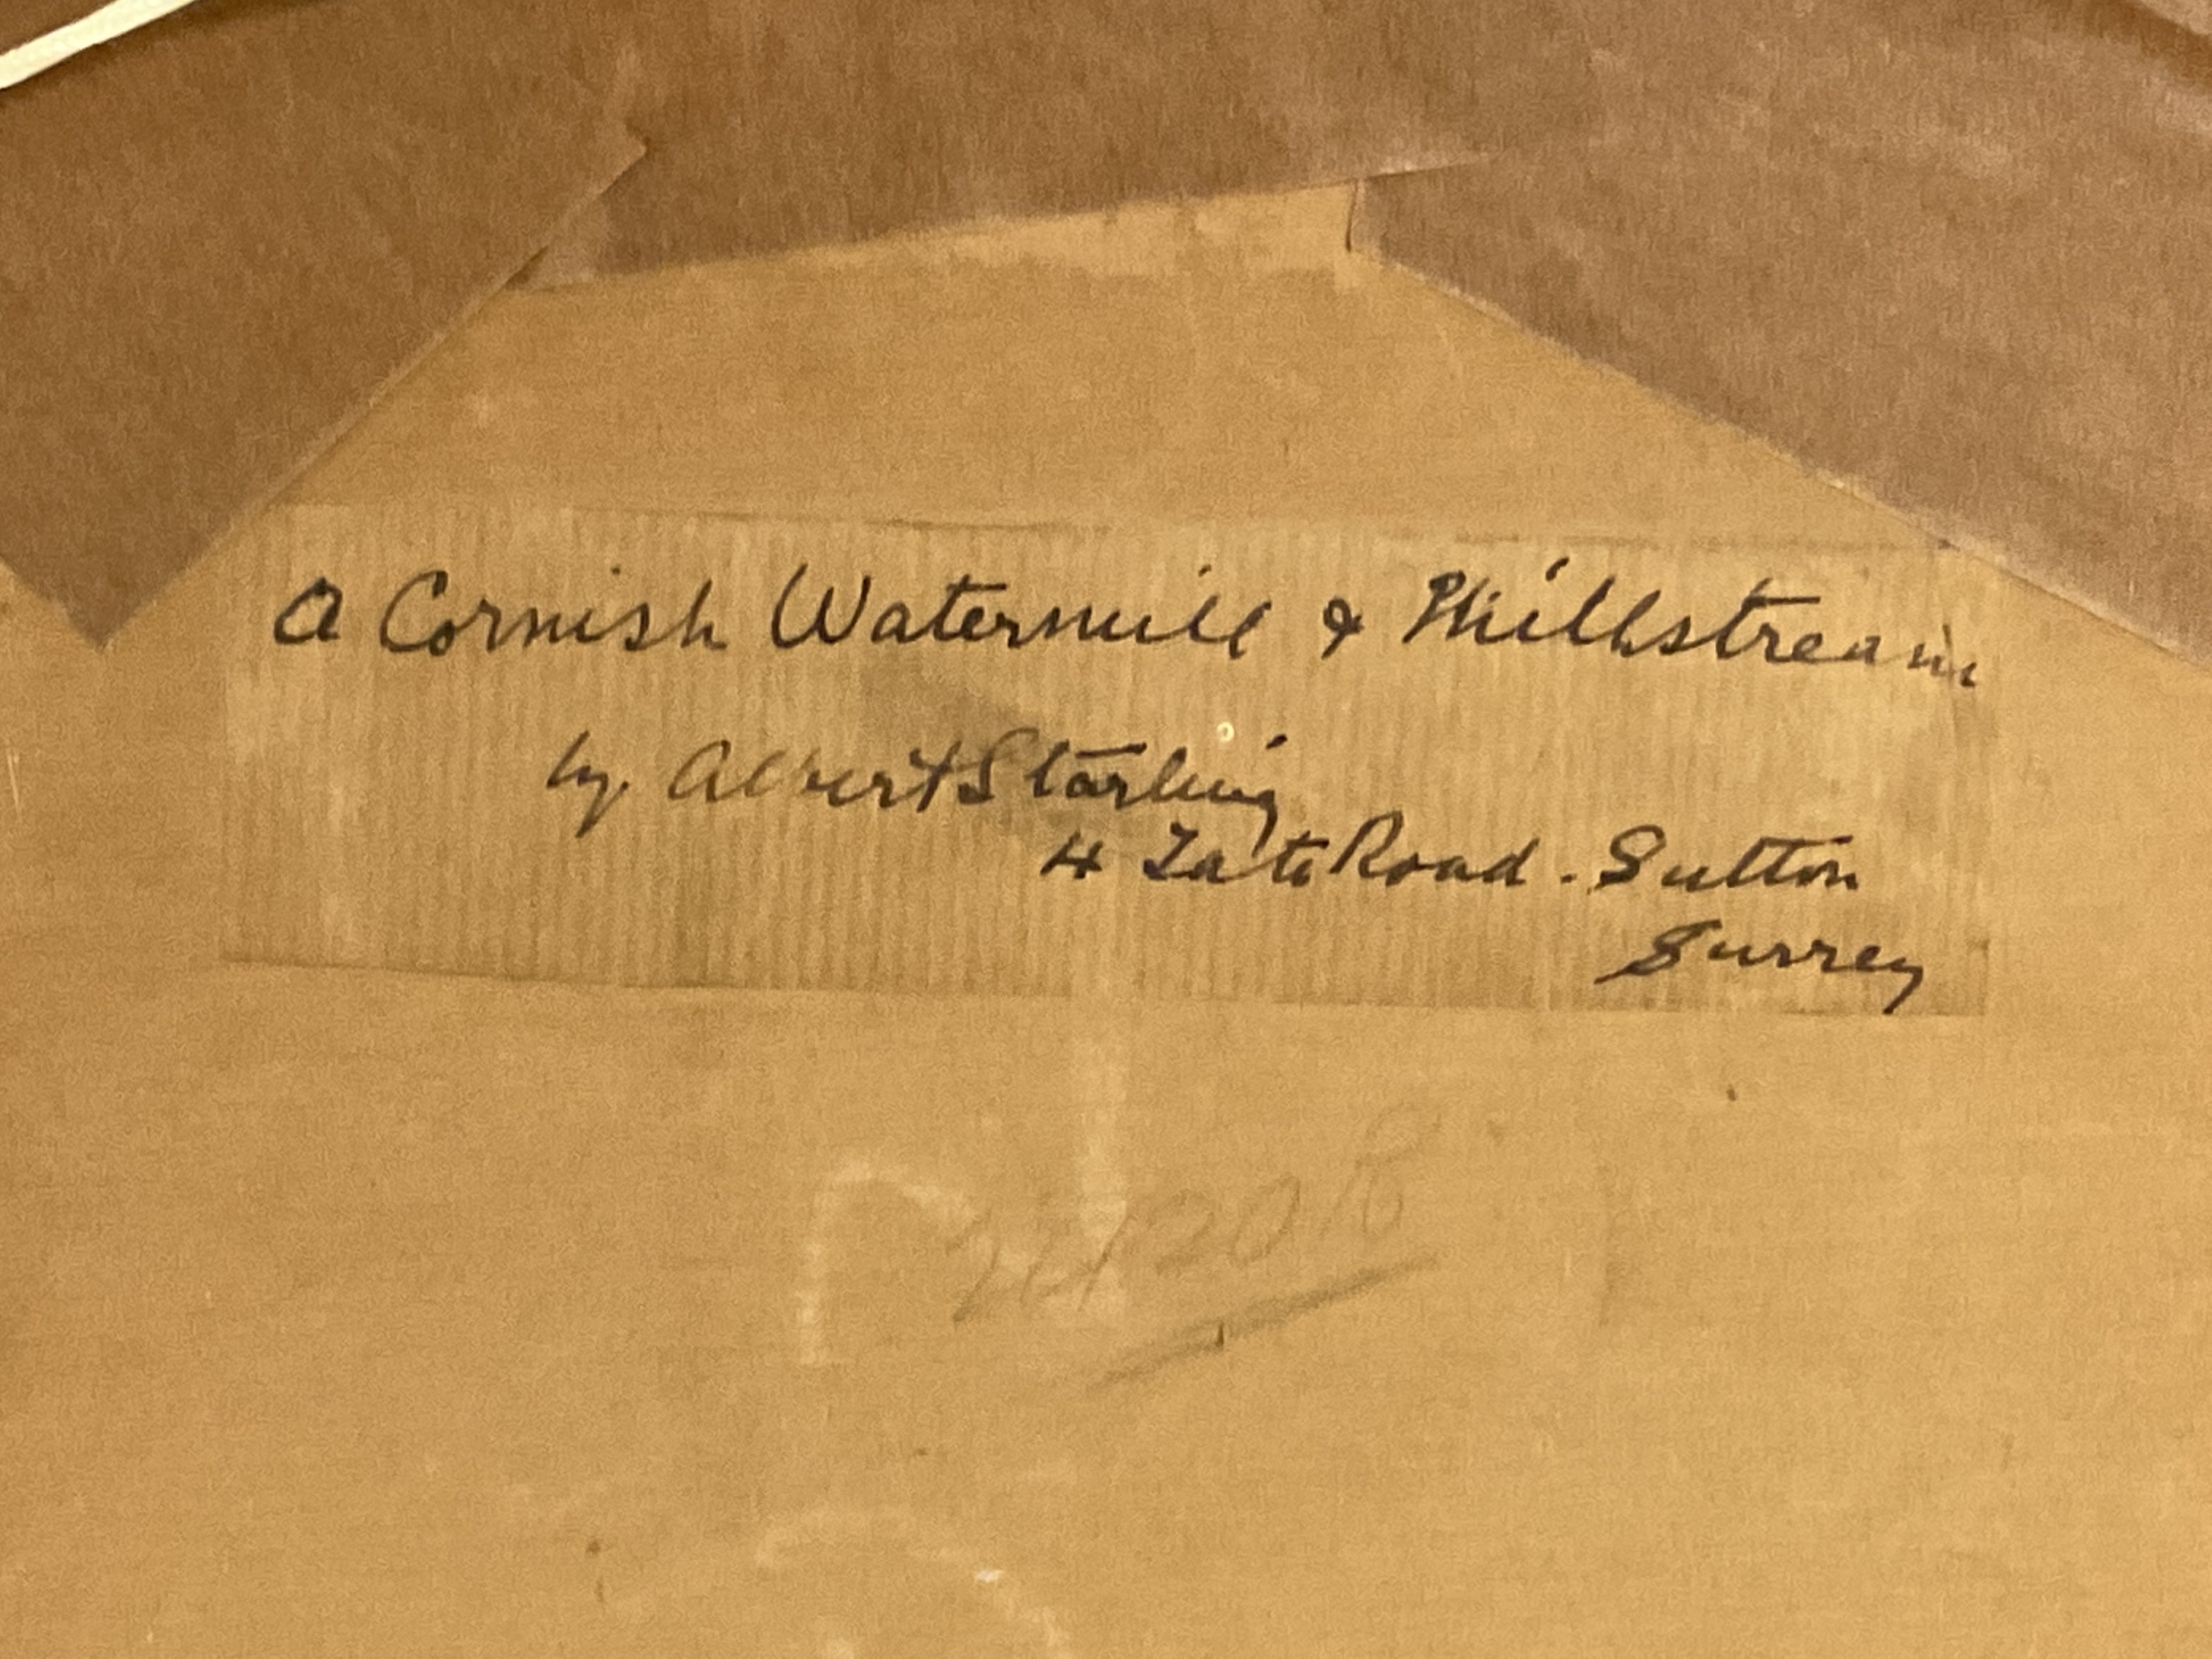 A Cornish Watermill & Millstream
by Albert Starling
4 Tate Road. Sutton
Surrey